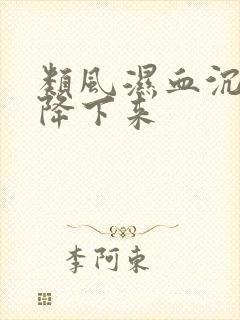 類風濕血沉
降下来
李阿東